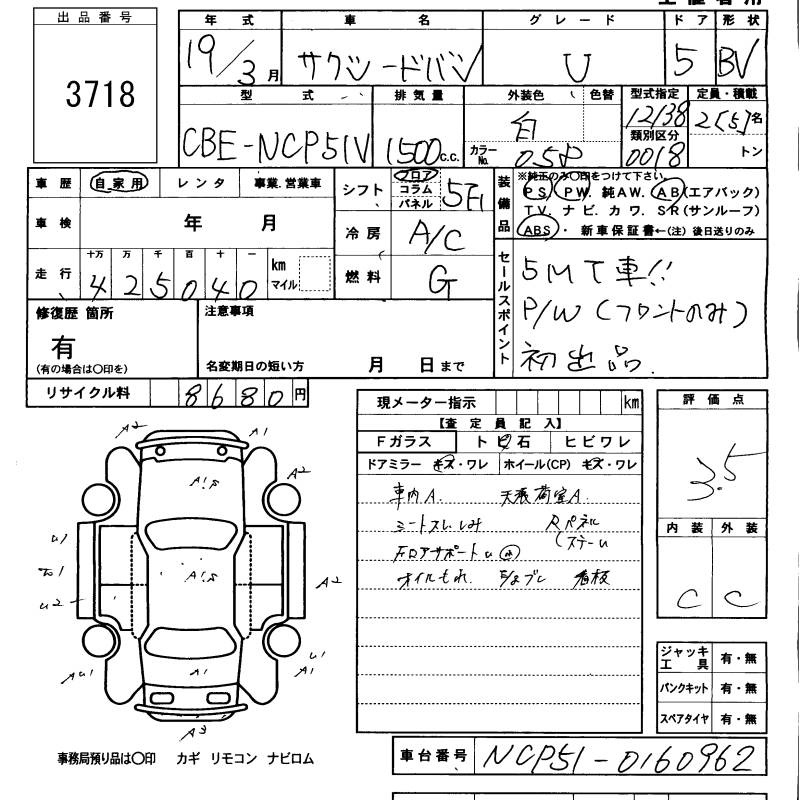 出品番号
3718
年式 車名 グレード ドア 形状
19/3月 サクシードバン U 5 BV
型式 排気量 外装色 色替 型式指定 定員・積載
CBE-NCP51V 1500c.c. 白 12138 2[5]名
カラーNo. 058 類別区分 0018 トン
車歴 自家用 レンタ 事業.営業車
車検 年 月
走行 十万 万 千 百 十 一 km マイル
425040
シフト フロア コラム パネル 5F
冷房 A/C
燃料 G
装備品
※純正のみ○印をつけて下さい。
PS PW. 純AW. AB(エアバック)
TV. ナビ. カワ. SR(サンルーフ)
ABS・ 新車保証書←(注) 後日送りのみ
セールスポイント
5MT車!!
P/W(フロントのみ)
初出品.
修復歴 箇所
有
(有の場合は○印を)
注意事項
名変期日の短い方 月 日まで
リサイクル料 8680円
現メーター指示 km
【査定員記入】
Fガラス トビ石 ヒビワレ
ドアミラー キズ・ワレ ホイール(CP) キズ・ワレ
車内A. 天張荷室A.
シートスレしみ Rパネル
オイルもれ. 看板
評価点
3.5
内装 外装
C C
ジャッキ工具 有・無
パンクキット 有・無
スペアタイヤ 有・無
A2 A1
A2
U1
U2
A2
A1
U1
A1
A3
事務局預り品は○印 カギ リモコン ナビロム
車台番号 NCP51-0160962